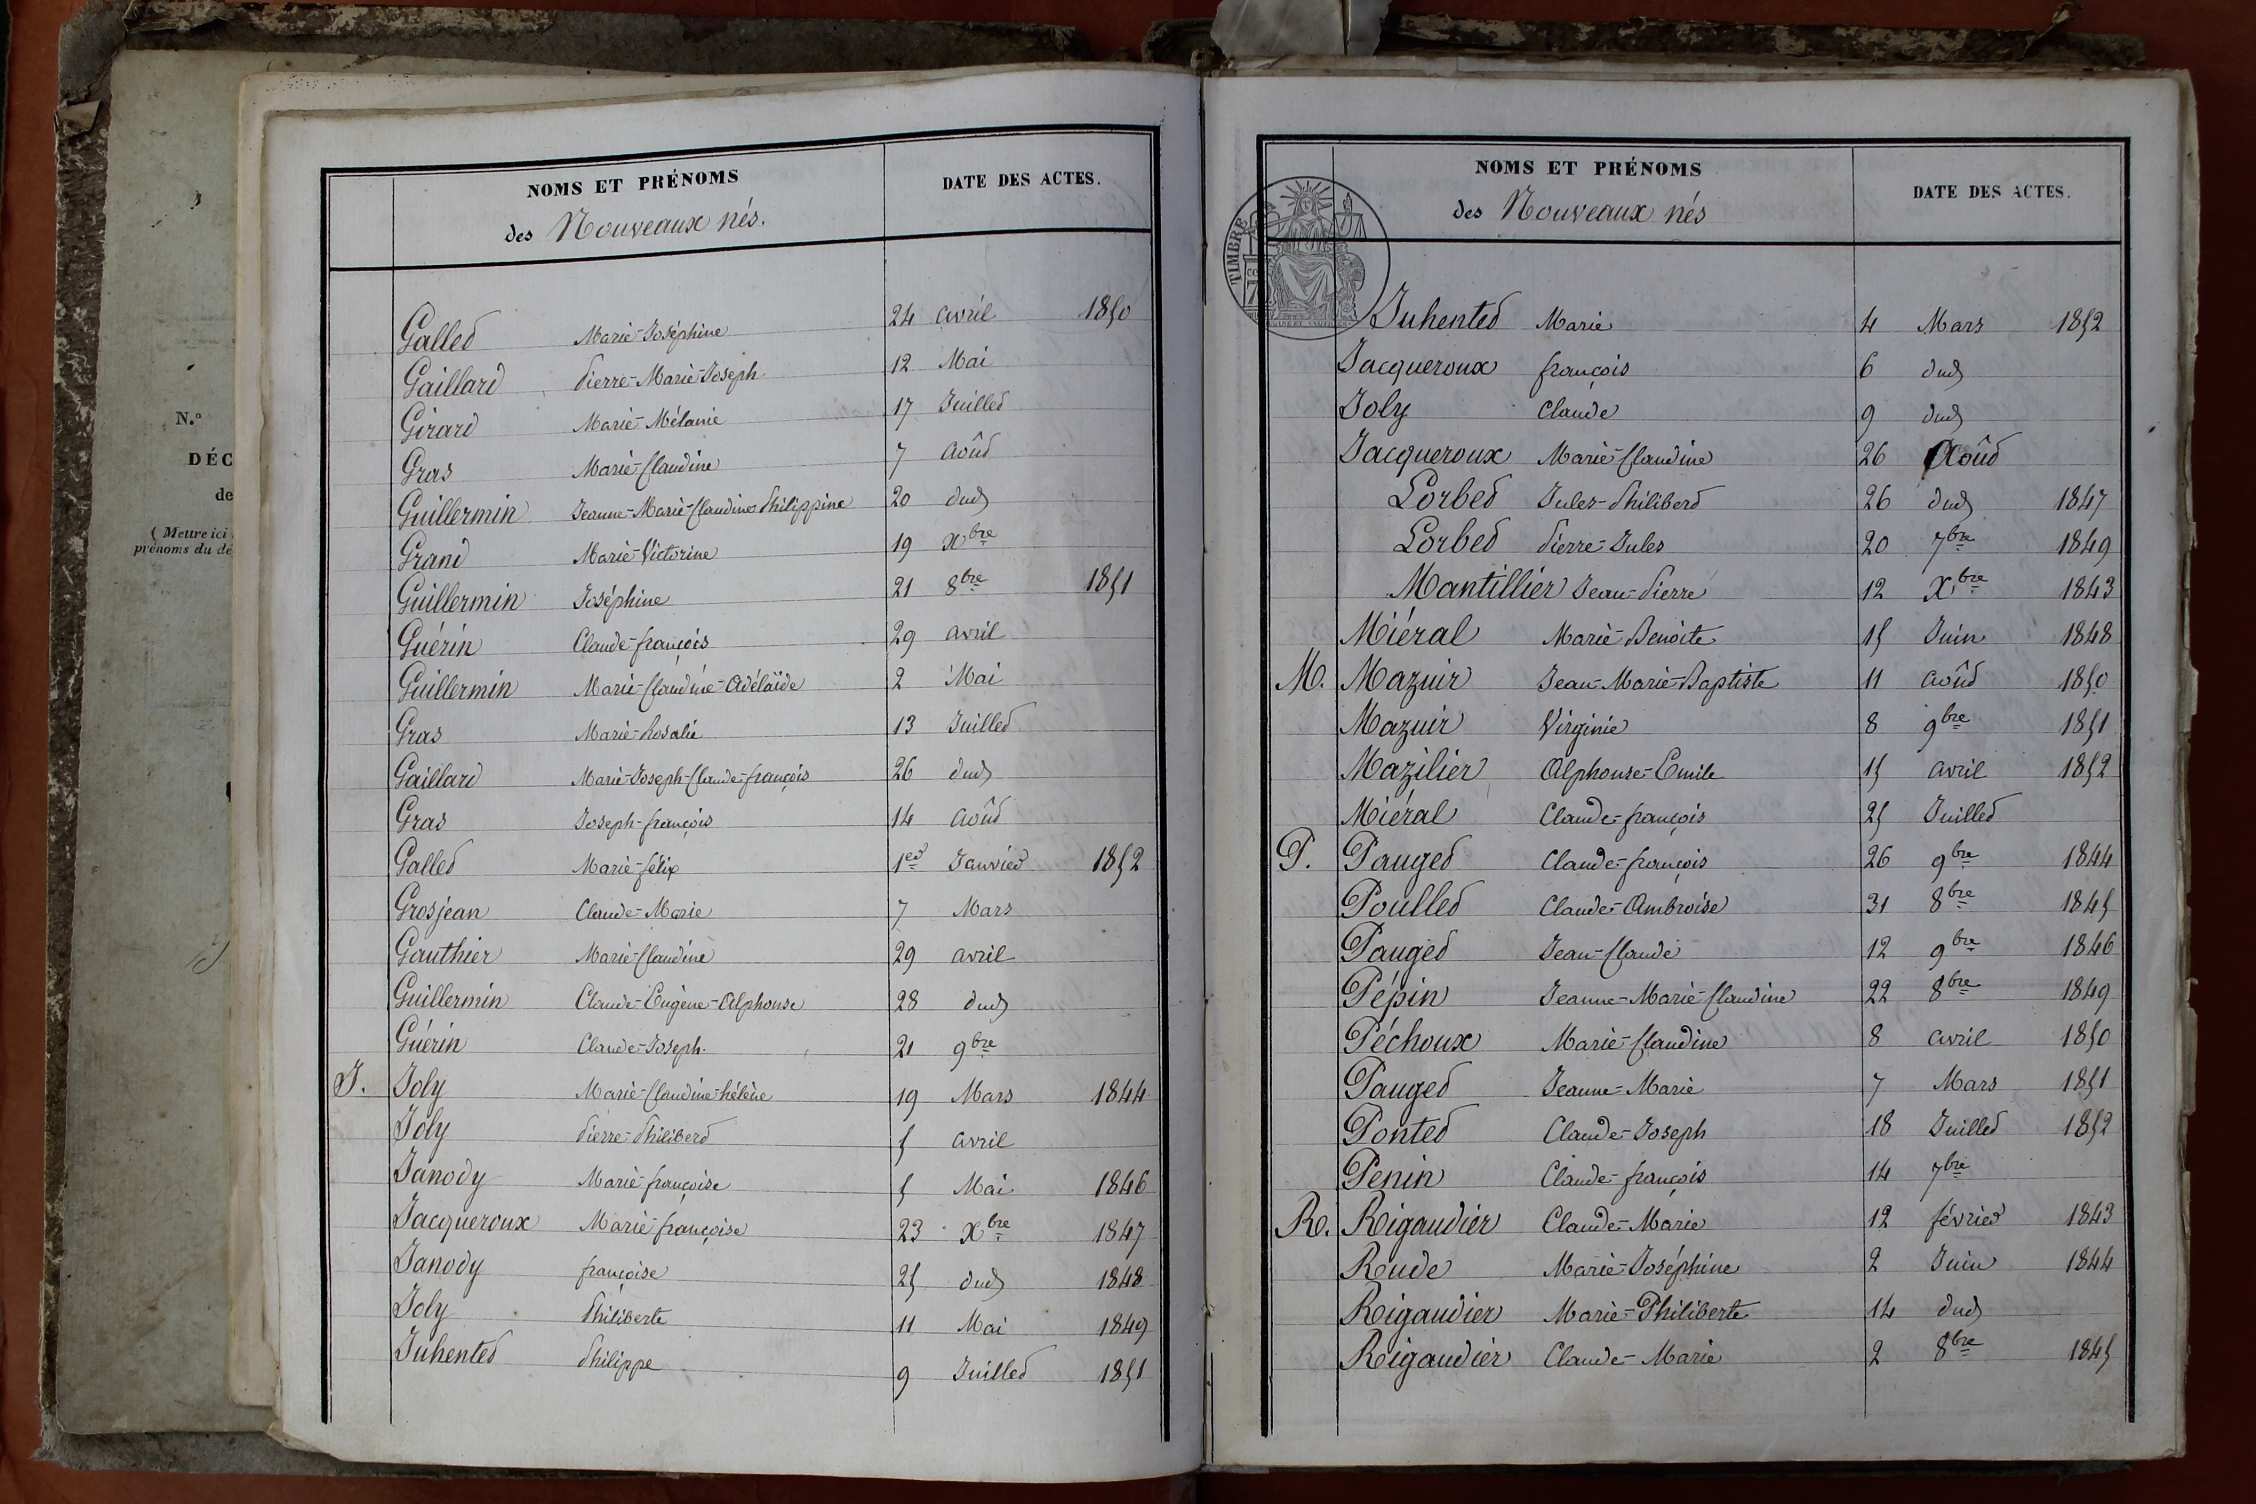 N.o
DÉC
de
( Mettre ici
prénoms du dé
NOMS ET PRÉNOMS
des Nouveaux nés.
DATE DES ACTES.
Gallet Marie-Joséphine 24 avril 1850
Gaillard Pierre-Marie-Joseph 12 Mai
Girard Marie-Mélanie 17 Juillet
Gras Marie-Claudine 7 août
Guillermin Jeanne-Marie-Claudine Philippine 20 dud
Grand Marie-Victorine 19 Xbre
Guillermin Joséphine 21 8bre 1851
Guérin Claude-françois 29 avril
Guillermin Marie-Claudine-Adélaïde 2 Mai
Gras Marie-Rosalie 13 Juillet
Gaillard Marie-Joseph-Claude-françois 26 dud
Gras Joseph-françois 14 août
Gallet Marie-félix 1er Janvier 1852
Grosjean Claude-Marie 7 Mars
Gauthier Marie-Claudine 29 avril
Guillermin Claude-Eugène-Alphonse 28 dud
Guérin Claude-Joseph. 21 9bre
J. Joly Marie-Claudine-hélène 19 Mars 1844
Joly Pierre-Philibert 5 avril
Janody Marie-françoise 5 Mai 1846
Jacqueroux Marie-françoise 23 Xbre 1847
Janody françoise 25 dud 1848
Joly Philiberte 11 Mai 1849
Juhentet Philippe 9 Juillet 1851
NOMS ET PRÉNOMS
des Nouveaux nés
DATE DES ACTES.
TIMBRE
Juhentet Marie 4 Mars 1852
Jacqueroux françois 6 dud
Joly Claude 9 dud
Jacqueroux Marie-Claudine 26 Août
Lorbet Jules-Philibert 26 dud 1847
Lorbet Pierre-Jules 20 7bre 1849
Mantillier Jean-Pierre 12 Xbre 1843
Miéral Marie-Benoite 15 Juin 1848
M. Mazuir Jean-Marie-Baptiste 11 août 1850
Mazuir Virginie 8 9bre 1851
Mazilier Alphonse-Emile 15 avril 1852
Miéral Claude-françois 25 Juillet
P. Pauget Claude-françois 26 9bre 1844
Poullet Claude-Ambroise 31 8bre 1845
Pauget Jean-Claude 12 9bre 1846
Pépin Jeanne-Marie-Claudine 22 8bre 1849
Péchoux Marie-Claudine 8 avril 1850
Pauget Jeanne-Marie 7 Mars 1851
Pontet Claude-Joseph 18 Juillet 1852
Penin Claude-françois 14 7bre
R. Rigaudier Claude-Marie 12 février 1843
Rude Marie-Joséphine 2 Juin 1844
Rigaudier Marie-Philiberte 14 dud
Rigaudier Claude-Marie 2 8bre 1845